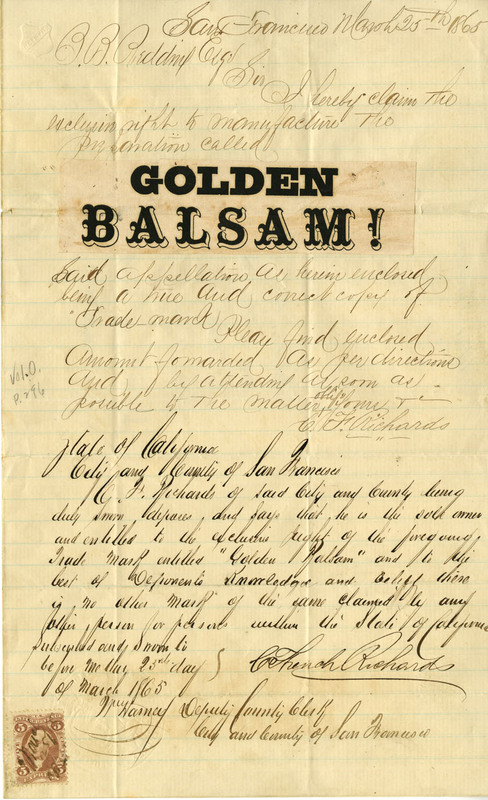 San Francisco March 25th 1865
B. B. Redding Esqr
Sir
I hereby claim the
exclusive right to manufacture the
preparation called
GOLDEN
BALSAM!
Said appellation as herein enclosed
being a true and correct copy of
Trade mark
Please find enclosed
Amount forwarded as per directions
And by attending as soon as
possible to the matter oblige yours
C. F. Richards
Vol. 0.
p. 296
State of California
City and County of San Francisco
C. F. Richards of said City and County being
duly sworn deposes and says that he is the sole owner
and entitled to the exclusive right of the foregoing
Trade Mark entitled "Golden Balsam" and to the
best of Deponents knowledge and belief there
is no other Mark of the same claimed by any
other person or persons within the State of California
Subscribed and Sworn to
before me this 25th day
of March 1865
C French Richards
Wm Harney Deputy County Clerk
City and County of San Francisco
5 5